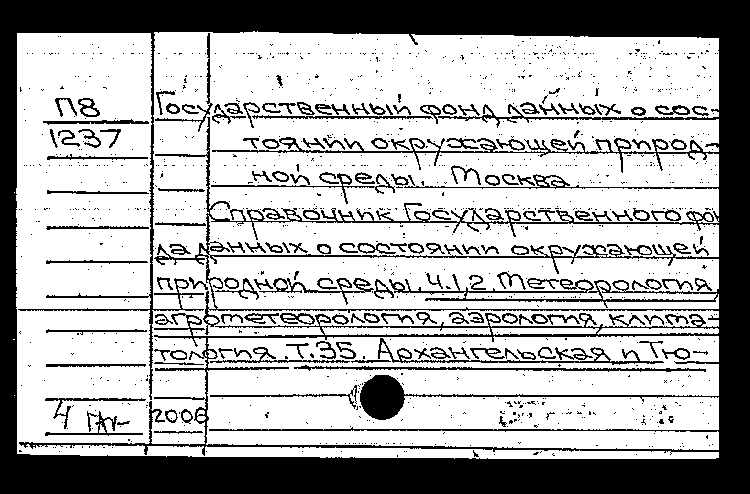 П8
1237
Государственный фонд данных о сос-
тоянии окружающей природ-
ной среды. Москва.
Справочник Государственного фон
да данных о состоянии окружающей
природной среды. Ч.1,2. Метеорология,
агрометеорология, аэрология, клима-
тология. Т.35. Архангельская и Тю-
4
2006